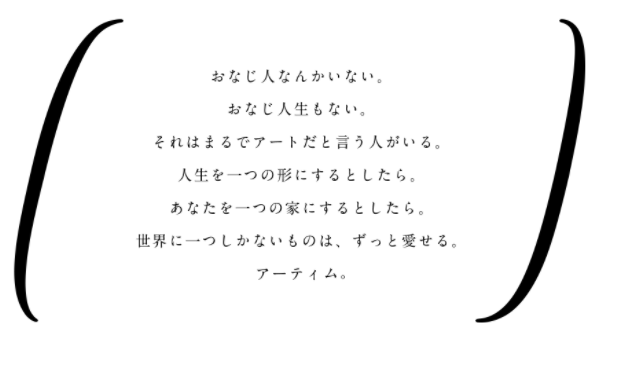 おなじ人なんかいない。
おなじ人生もない。
それはまるでアートだと言う人がいる。
人生を一つの形にするとしたら。
あなたを一つの家にするとしたら。
世界に一つしかないものは、ずっと愛せる。
アーティム。